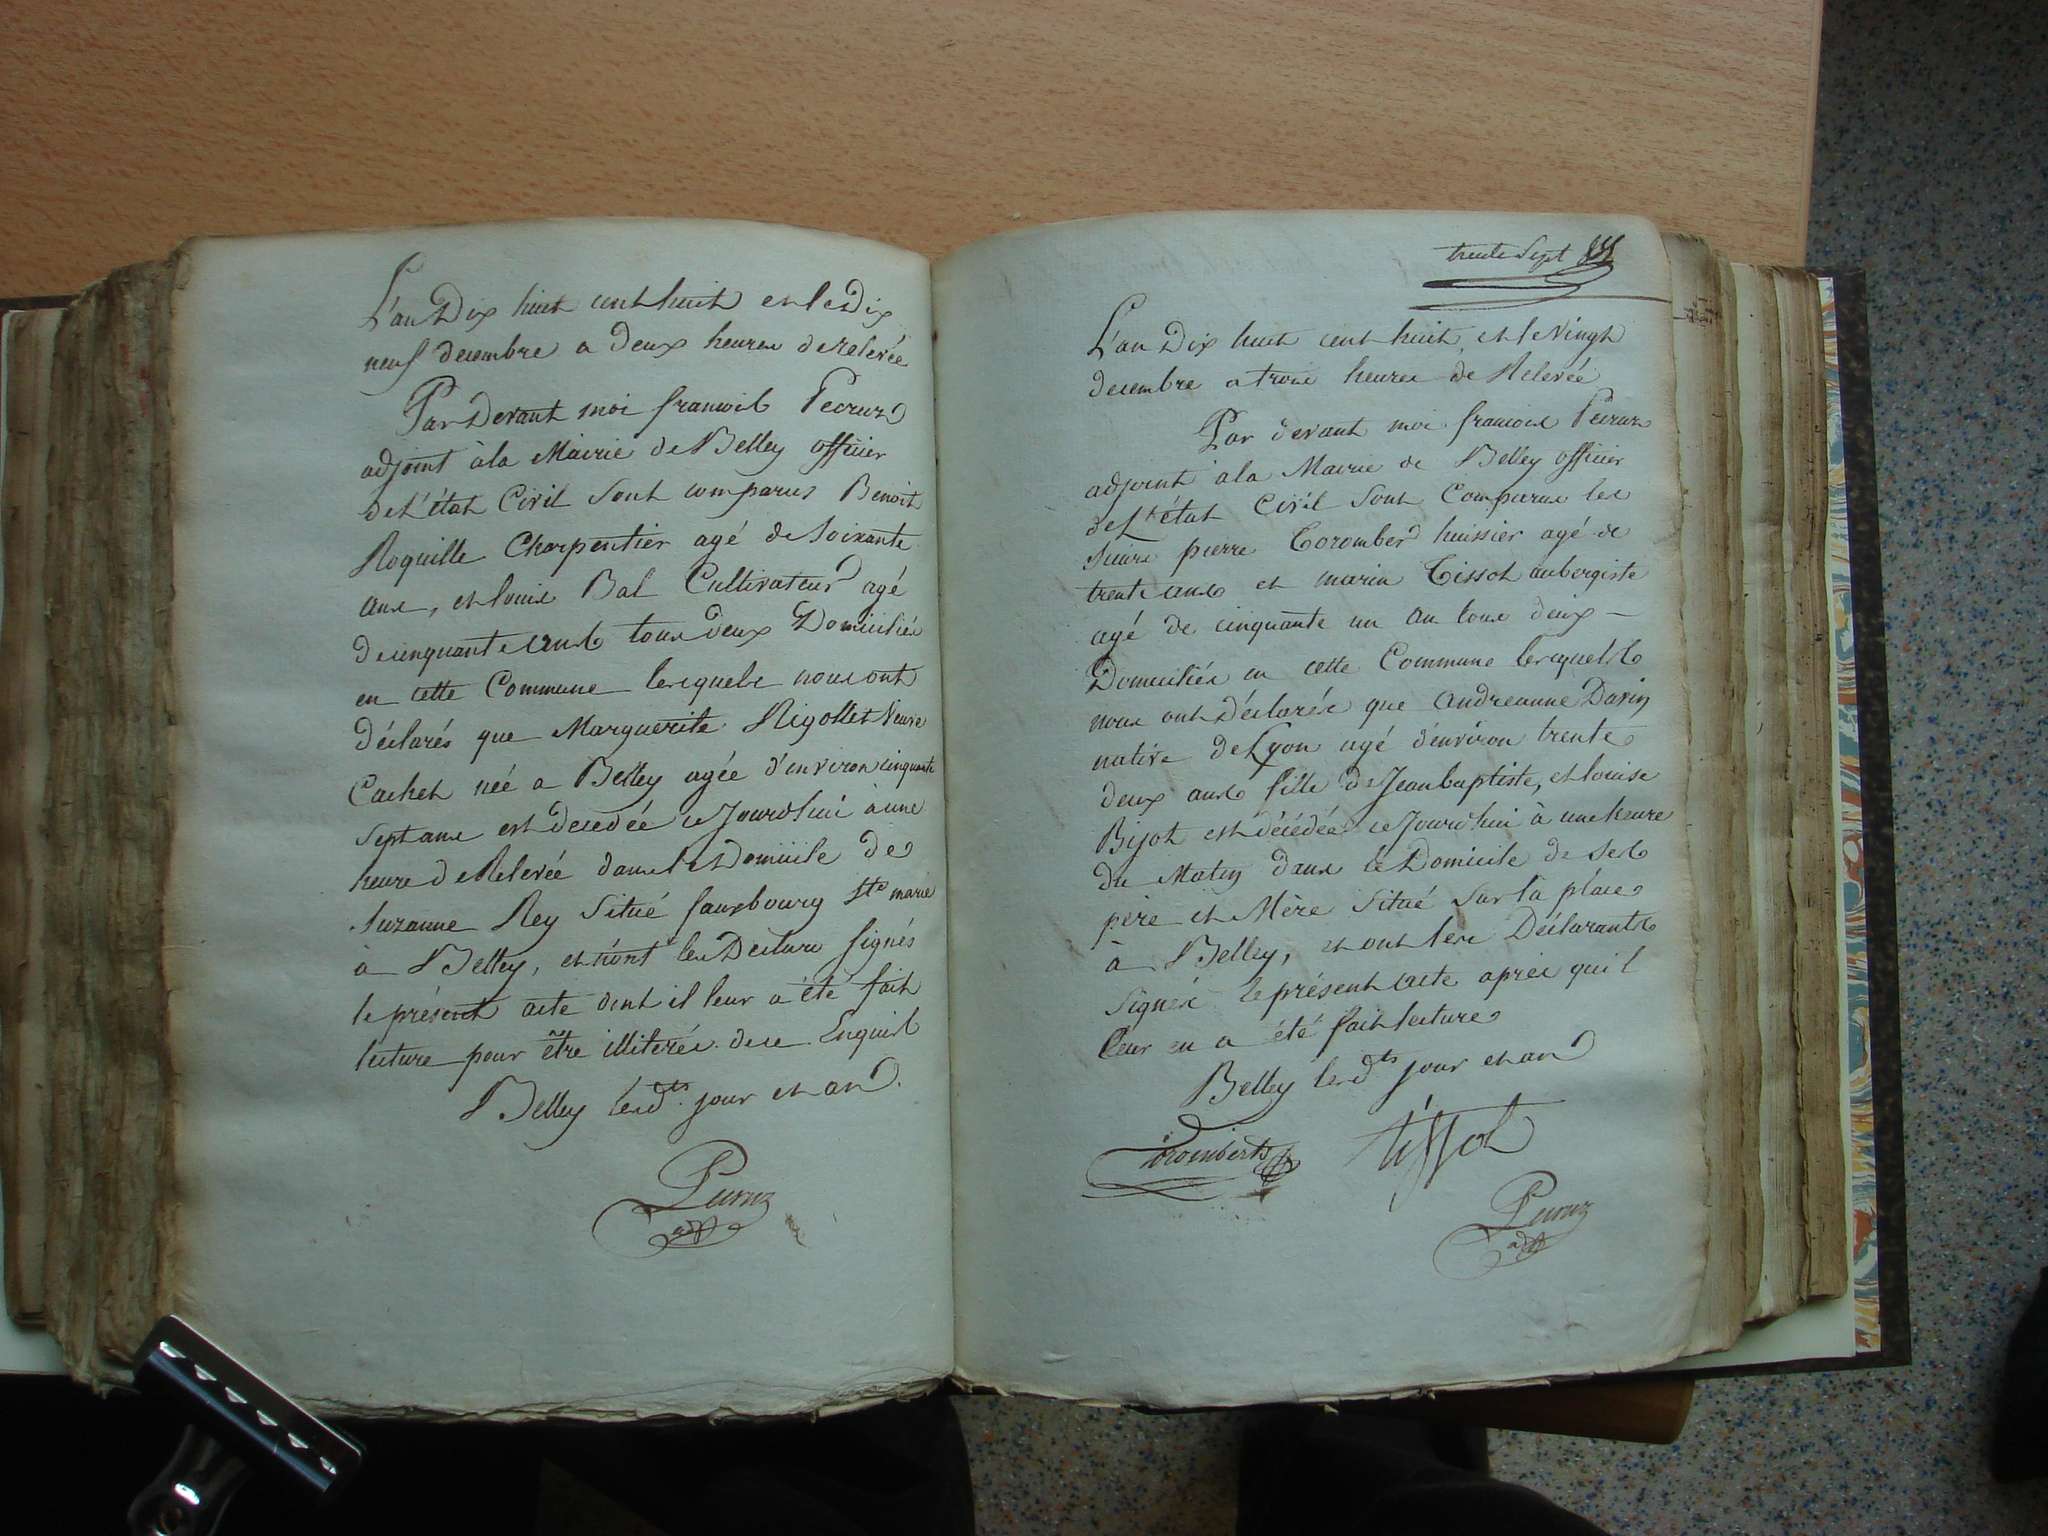 L'an Dix huit cent huit et le Dix
neuf decembre a deux heures de relevée
Par Devant moi francois Pecruz
adjoint à la Mairie de Belley officier
de L'état Civil sont comparus Benoit
Roquille Charpentier agé de soixante
ans, et louis Bal Cultivateur agé
de cinquante ans tous deux Domiciliés
en cette Commune lesquels nous ont
déclarés que Marguerite Rigollet Veuve
Cachet née a Belley agée d'environ cinquante
sept ans est decedée ce Jourd'hui à une
heure de Relevée dans le Domicile de
Suzanne Rey Situé fauxbourg Ste marie
à Belley, et n'ont les Declara signés
le présent acte dont il leur a été fait
lecture pour être illiterés de ce Enquis
Belley lesdts jour et an
Pecruz
adjt
trente Sept
L'an Dix huit cent huit, et le Vingt
decembre a trois heures de Relevée
Par devant moi francois Pecruz
adjoint à la Mairie de Belley officier
de L'état Civil sont Comparus les
sieurs pierre Coromberd huissier agé de
trente ans et marin Tissot aubergiste
agé de cinquante un an tous deux
Domiciliés en cette Commune lesquels
nous ont déclarés que andreanne Davin
native de Lyon agé d'environ trente
deux ans fille de Jean baptiste, et louise
Bijot est décédée ce Jourd'hui à une heure
du Matin dans le Domicile de ses
père et Mère situé sur la place
à Belley, et ont les Déclarants
signés le présent acte après qu'il
leur en a été fait lecture
Belley lesdts jour et an
Coromberts tissot
Pecruz
adjt